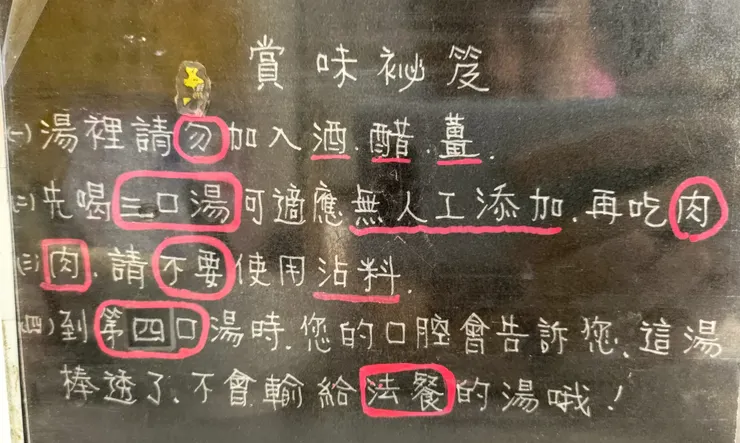 賞味祕笈
(一)湯裡請勿加入酒、醋、薑.
(二)先喝三口湯可適應無人工添加.再吃肉
(三)肉.請不要使用沾料.
(四)到第四口湯時.您的口腔會告訴您、這湯
棒透了、不會輸給法餐的湯哦！